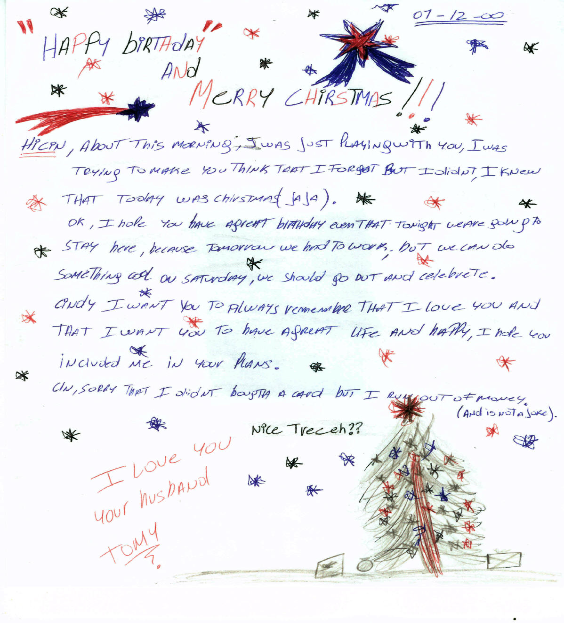 07-12-00
"HAPPY biRTHday"
AND
MERRY CHIRSTMAS!!!
HiCIN, About This morning, I was just Playing with you, I was
TRYing TO MAKE You Think THAT I FORGOT BUT I didnt, I Knew
THAT Today was chirstmas (JAJA).
OK, I hope you have a great birthday even that tonight we are going to
STAY here, because Tomorrow we had to work, but we can do
Something cool on Saturday, we should go out and celebrete.
Cindy I want you to Always remember THAT I love you AND
THAT I WANT YOU TO have A great Life AND happy, I hope you
included me in your Plans.
CIN, sorry that I didnt bougth a card but I run out of money.
(And is not a joke).
Nice Treeeh??
I Love you
your husband
TOMY